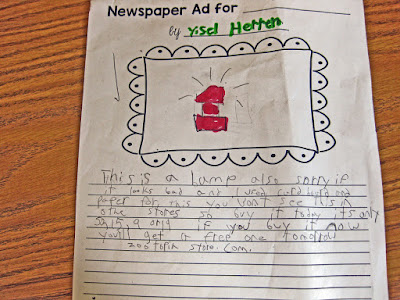 Newspaper Ad for
by Yisel Herrera
This is a Lamp also sorry if
it looks bad and I used card bord and
paper for this you wont see this in
othe stores so buy it today its only
if you buy it now
you'll get a free one tomorrow
zootopia store.com.